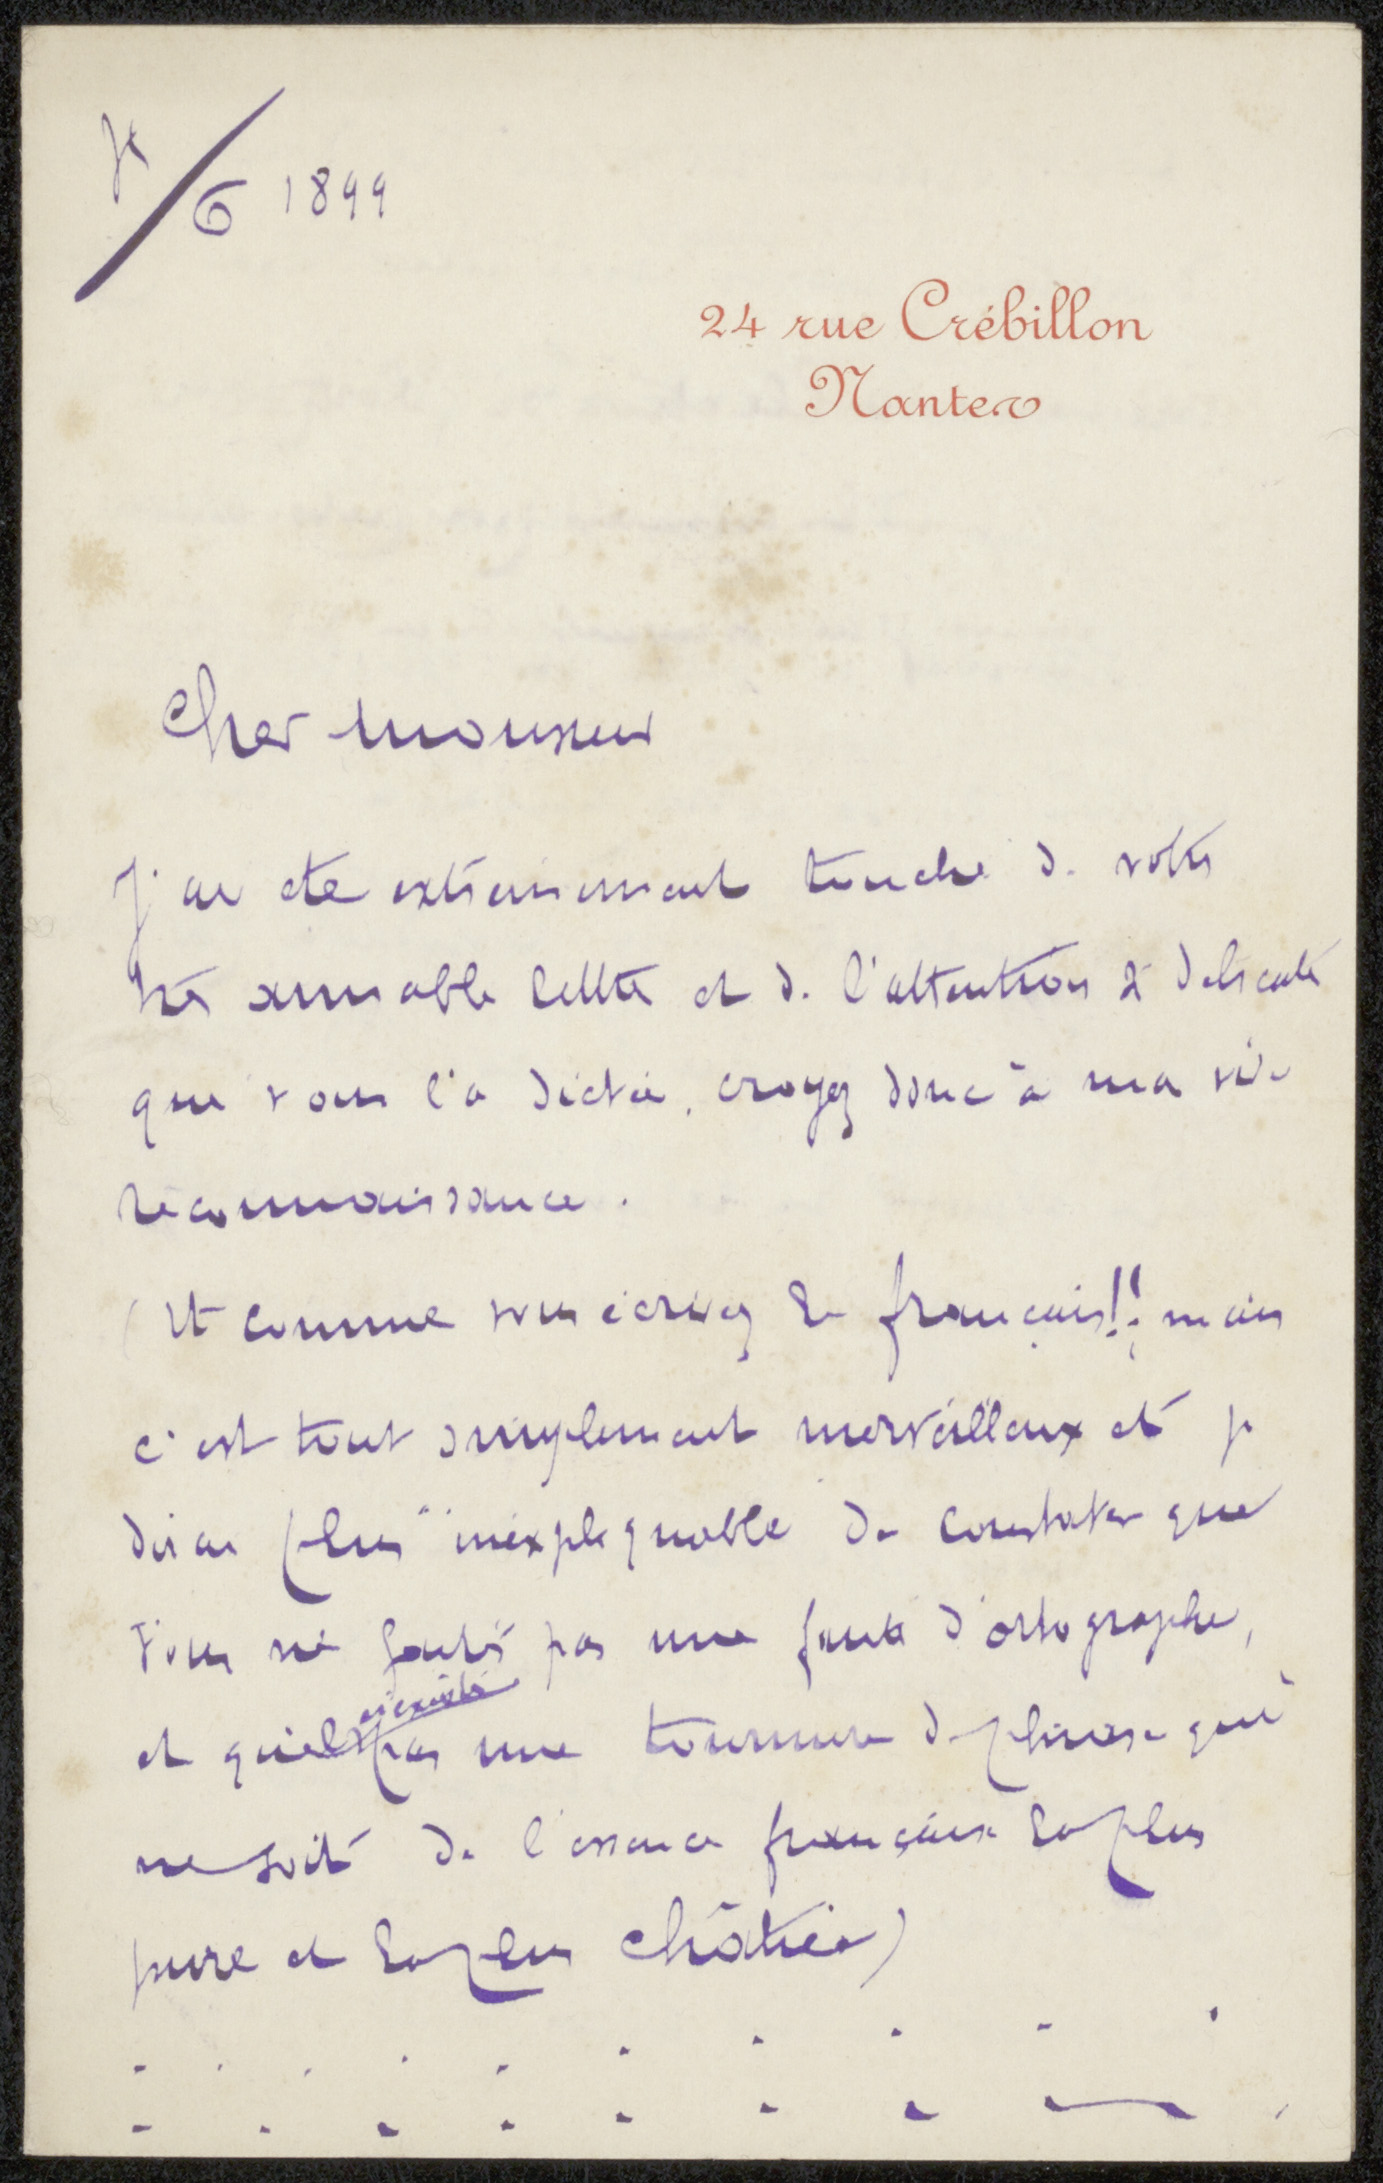 6 1899
24 rue Crébillon
Nantes
Cher monsieur
J'ai été extrèmement touché de votre
très aimable lettre et de l'attention si délicate
que vous l'a dictée, croyez donc à ma vive
reconnaissance.
(et comme vous écrivez le français!! mais
c'est tout simplement merveilleux et je
dirai plus "inexpliquable de constater que
vous ne faites pas une faute d'ortographe,
et qu'il n'existe pas une tournure de phrase qui
ne soit de l'essence française la plus
pure et la plus châtiée)